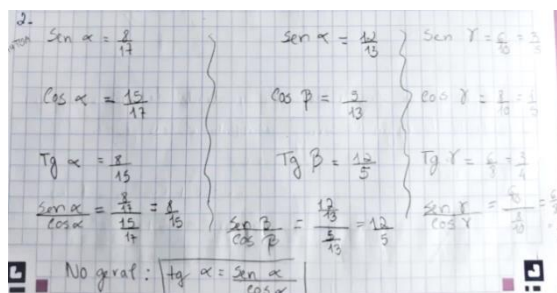 2.
Sen α = 8/17
Cos α = 15/17
Tg α = 8/15
sen α / cos α = (8/17)/(15/17) = 8/15
Sen α = 12/13
Cos β = 5/13
Tg β = 12/5
sen β / cos β = (12/13)/(5/13) = 12/5
Sen γ = 6/10 = 3/5
Cos γ = 8/10 = 4/5
Tg γ = 6/8 = 3/4
sen γ / cos γ = (6/10)/(8/10) =
No geral: tg α = sen α / cos α